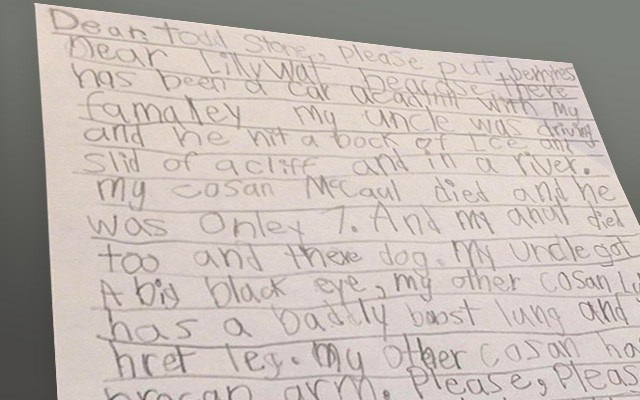 Dear, todd Stone, Please put pennnes
Dear Lilywat beacase there
has been a car acadinit with my
famaley my uncle was driving
and he hit a bock of Ice and
slid of a cliff and in a river.
my cosan McCaul died and he
was Onley 7. And my anut died
too and there dog. My uncle got
A big black eye, my other cosan Lu
has a baddly boost lung and
hret leg. My other cosan ha
brocan arm. Please, Pleas